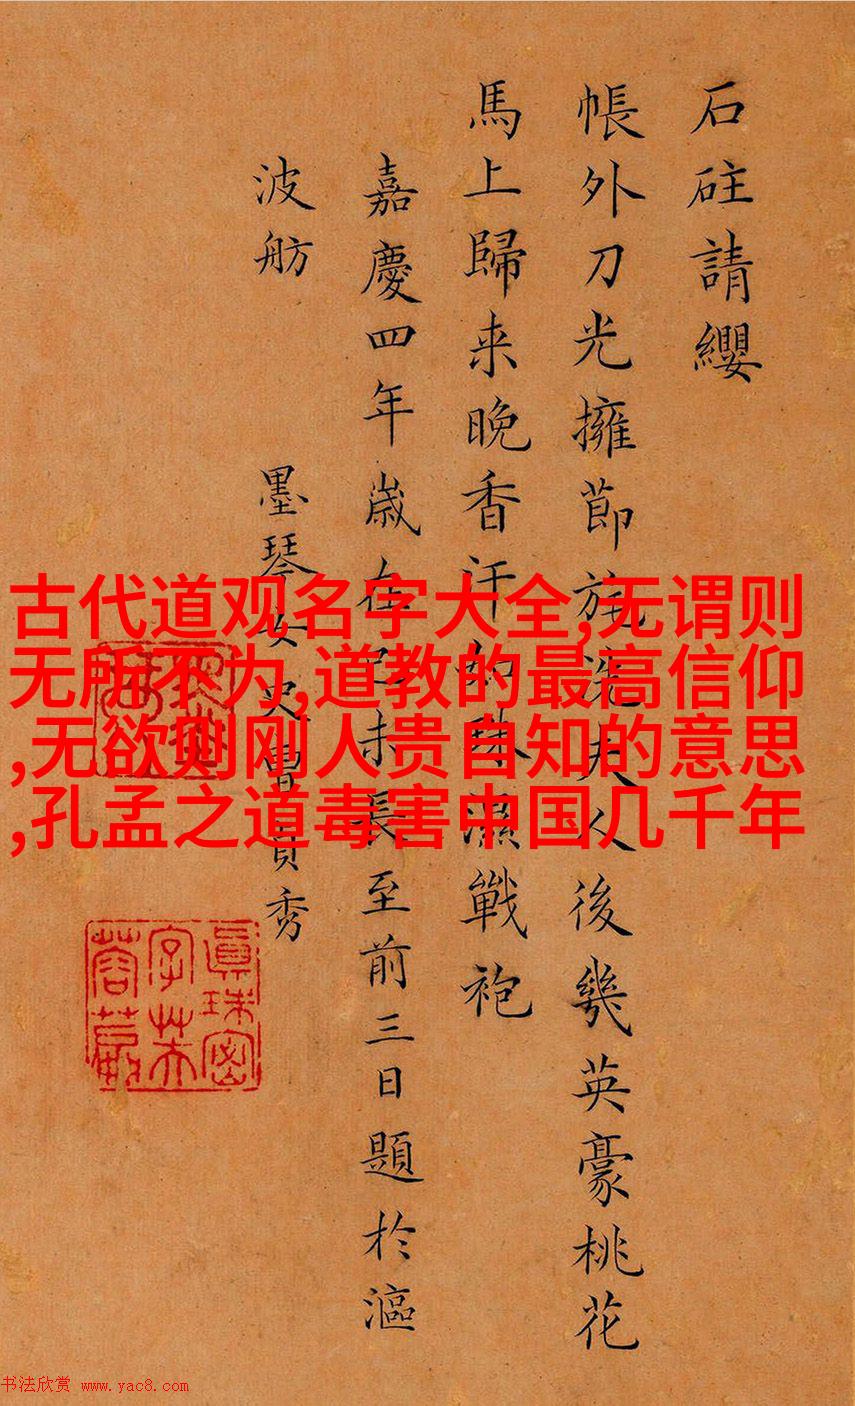 石砫請纓
帳外刀光擁節旄洗夫人後幾英豪桃花
馬上歸来晚香汗如珠濕戰袍
嘉慶四年歲在己未長至前三日題於漚
波舫 墨琴女史曹貞秀
眞珠密
字芙
蓉
古代道观名字大全,无谓则
无所不为,道教的最高信仰
,无欲则刚人贵自知的意思
,孔孟之道毒害中国几千年
书法欣赏 www.yac8.com